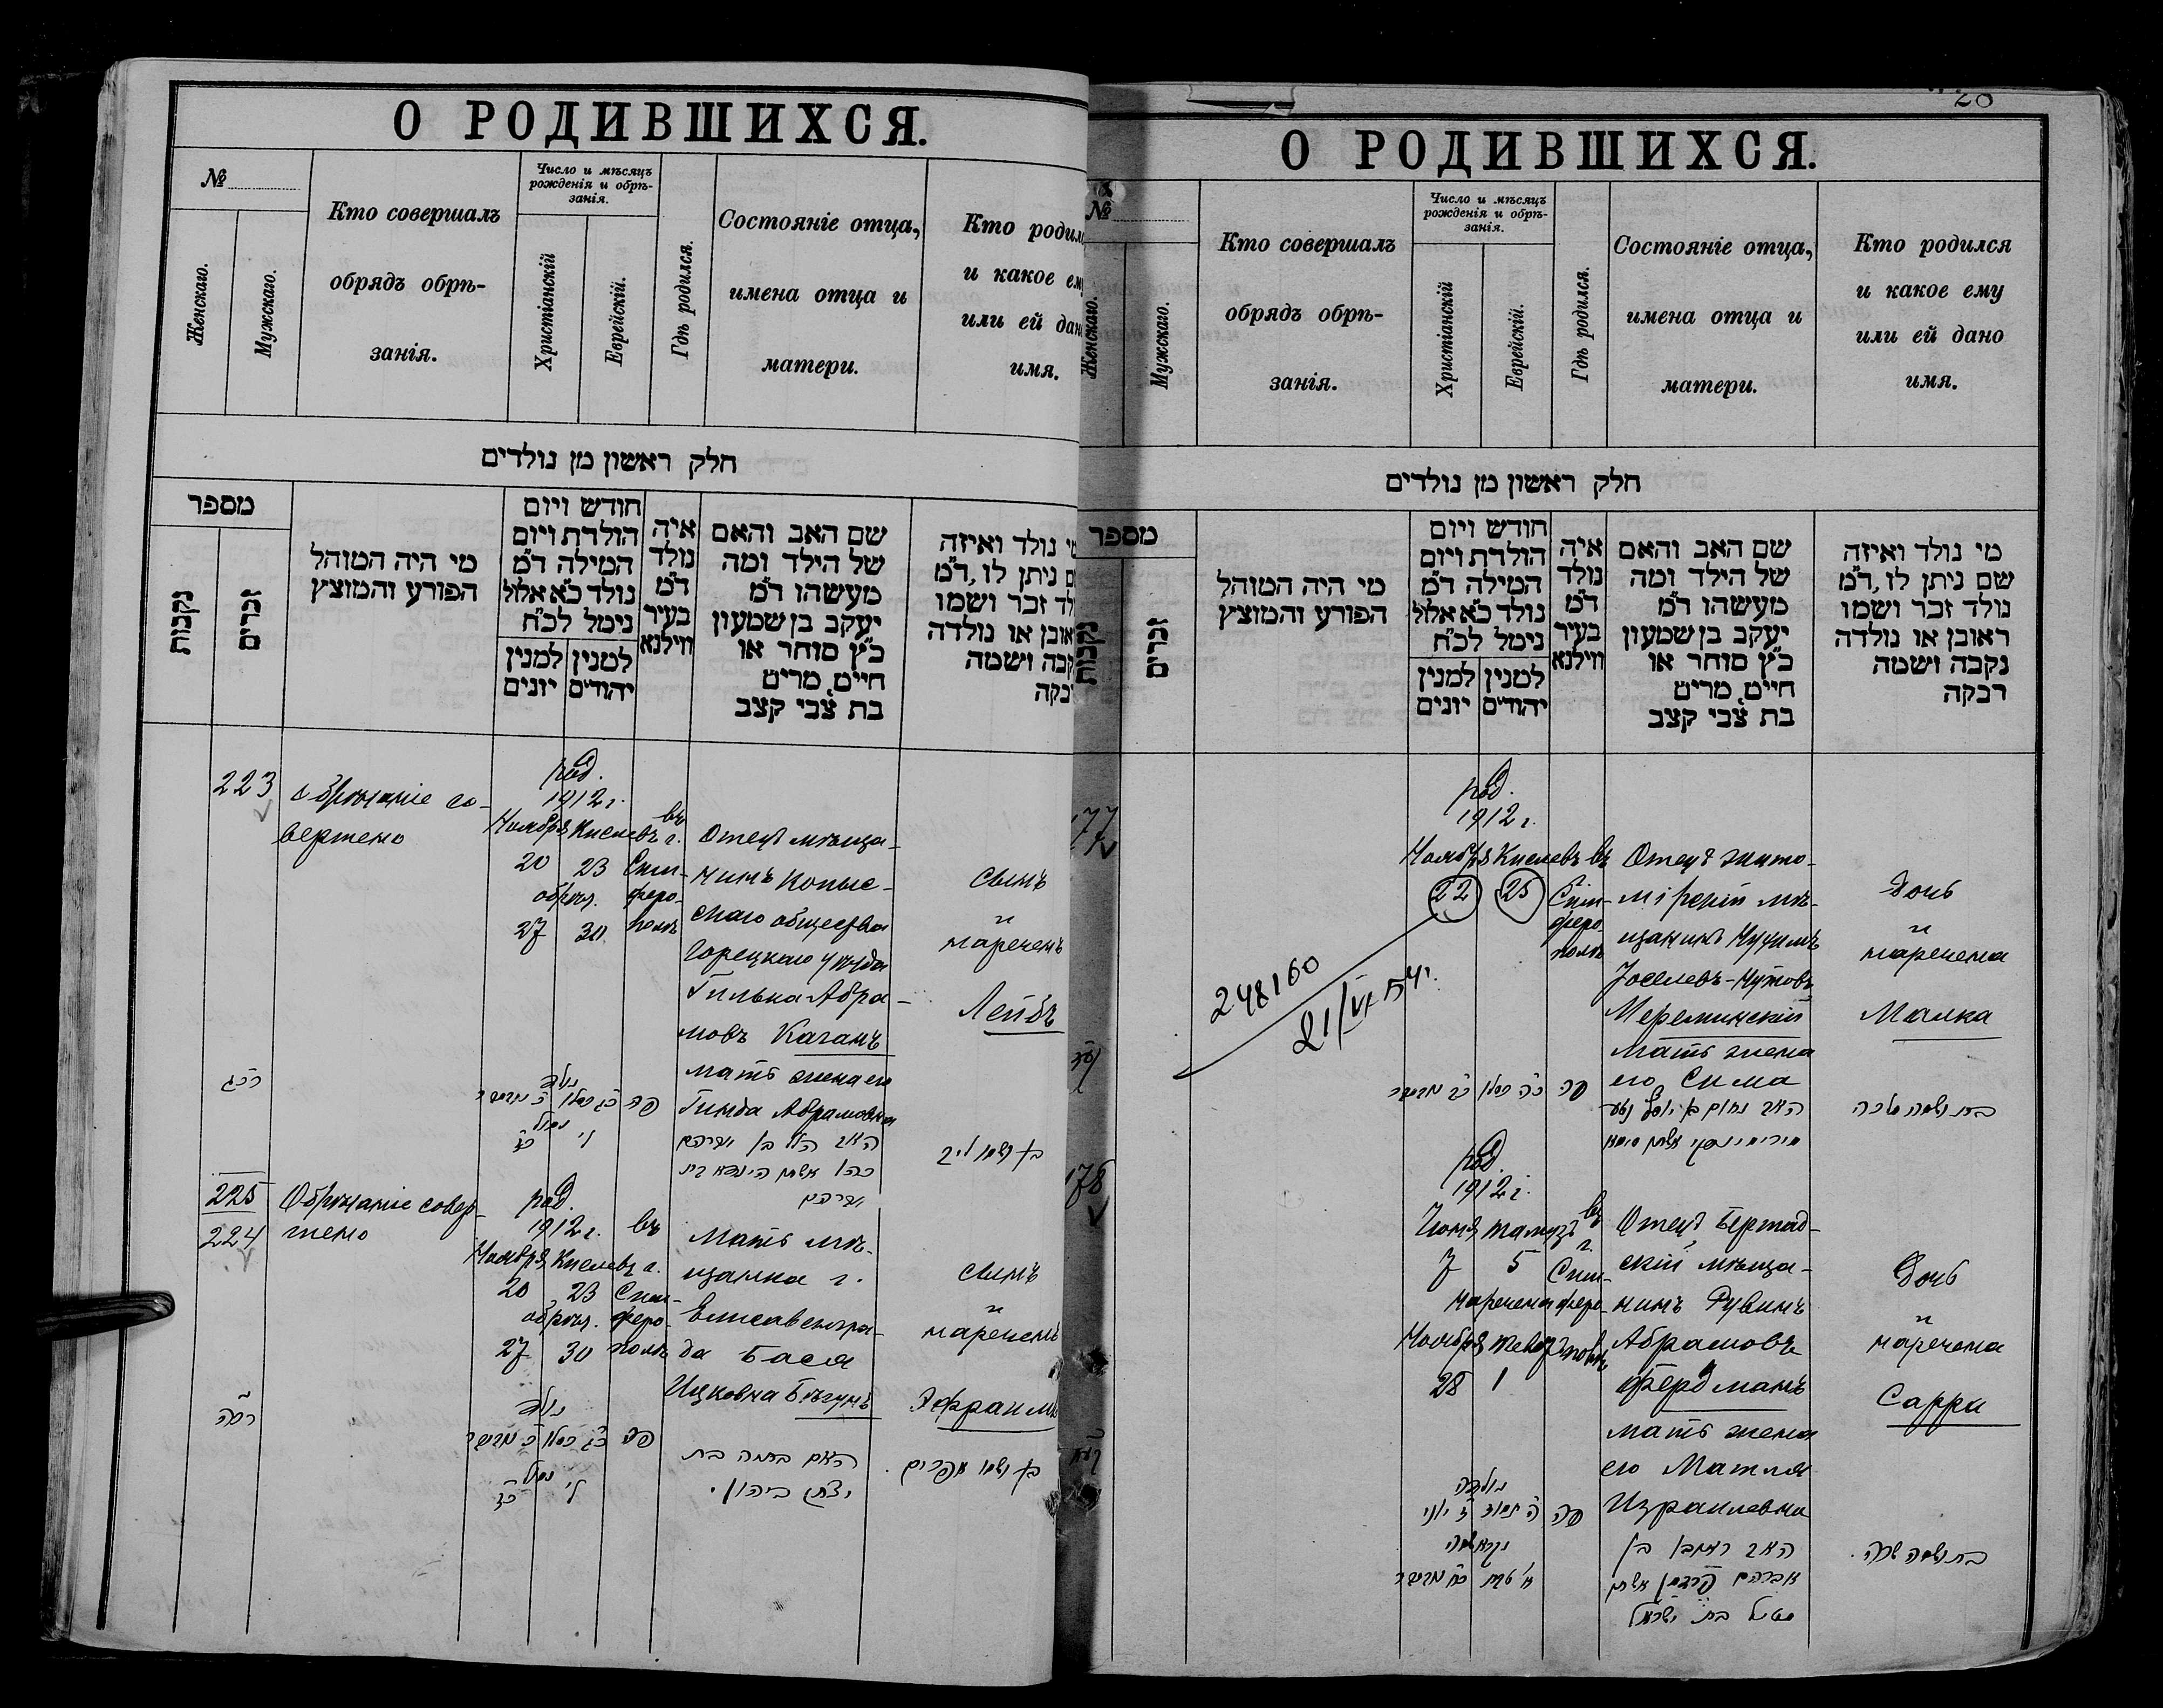 О РОДИВШИХСЯ.
№
Женскаго.
Мужскаго.
Кто совершалъ
обрядъ обрѣ-
занія.
Число и мѣсяцъ
рожденія и обрѣ-
занія.
Христіанскій
Еврейскій.
Гдѣ родился.
Состояніе отца,
имена отца и
матери.
Кто родил
и какое ему
или ей дано
имя.
חלק ראשון מן נולדים
מספר
נקבות
זכרים
מי היה המוהל
הפורע והמוצץ
חודש ויום
הולדת ויום
המילה ד״מ
נולד כ״א אלול
נימל לכ״ח
למנין יהודים
למנין יונים
איה
נולד
ד״מ
בעיר
ווילנא
שם האב והאם
של הילד ומה
מעשהו ד״מ
יעקב בן שמעון
כ״ץ סוחר או
חיים, מרים
בת צבי קצב
נולד ואיזה
ניתן לו, ד״מ
זכר ושמו
ראובן או נולדה
נקבה ושמה
רבקה
223
обрѣзаніе со-
вершено
род.
1912 г.
Ноября Кислевъ
20 23
обрѣз.
27 30
въ
г.
Сим-
феро-
полѣ
Отецъ мѣща-
нинъ Копыс-
скаго общества
Горецкаго уѣзда
Гилька Абра-
мовъ Каганъ
мать жена его
Гинда Абрамовна
сынъ
и
нареченъ
Лейбъ
רכג
נולד
כג כסלו
נימול
ל׳
בן ושמו ליב
225
224
Обрѣзаніе совер-
шено
род.
1912 г.
Ноября Кислевъ
20 23
обрѣз.
27 30
въ
г.
Сим-
феро-
полѣ
Мать мѣ-
щанка г.
Елисаветгра-
да Бася
Ицковна Бѣгунъ
сынъ
и
нареченъ
Эфраимъ
נולד
כג כסלו
נימול
ל׳
בן ושמו אפרים.
20
О РОДИВШИХСЯ.
№
Женскаго.
Мужскаго.
Кто совершалъ
обрядъ обрѣ-
занія.
Число и мѣсяцъ
рожденія и обрѣ-
занія.
Христіанскій
Еврейскій.
Гдѣ родился.
Состояніе отца,
имена отца и
матери.
Кто родился
и какое ему
или ей дано
имя.
חלק ראשון מן נולדים
מספר
נקבות
זכרים
מי היה המוהל
הפורע והמוצץ
חודש ויום
הולדת ויום
המילה ד״מ
נולד כ״א אלול
נימל לכ״ח
למנין יהודים
למנין יונים
איה
נולד
ד״מ
בעיר
ווילנא
שם האב והאם
של הילד ומה
מעשהו ד״מ
יעקב בן שמעון
כ״ץ סוחר או
חיים, מרים
בת צבי קצב
מי נולד ואיזה
שם ניתן לו, ד״מ
נולד זכר ושמו
ראובן או נולדה
נקבה ושמה
רבקה
177
род.
1912 г.
Ноября Кислевъ
22 25
въ
Сим-
феро-
полѣ
Отецъ жито-
мірскій мѣ-
щанинъ Нухимъ
Іоселевъ-Нутовъ
Мереминскій
мать жена
его Сима
Дочь
и
наречена
Малка
248160
כה כסלו
בת ושמה מלכה
178
род.
1912 г.
Іюня тамузъ
7 5
наречена
Ноября
28 1
въ
г.
Сим-
феро-
полѣ
Отецъ Бершад-
скій мѣща-
нинъ Рувинъ
Абрамовъ
Фердманъ
мать жена
его Матля
Израилевна
Дочь
и
наречена
Сарра
נולדה
ה׳ תמוז ז׳ יוני
א׳ טבת
האב ראובן בן
אברהם פרדמן אשתו
בת ישראל
בת ושמה שרה.